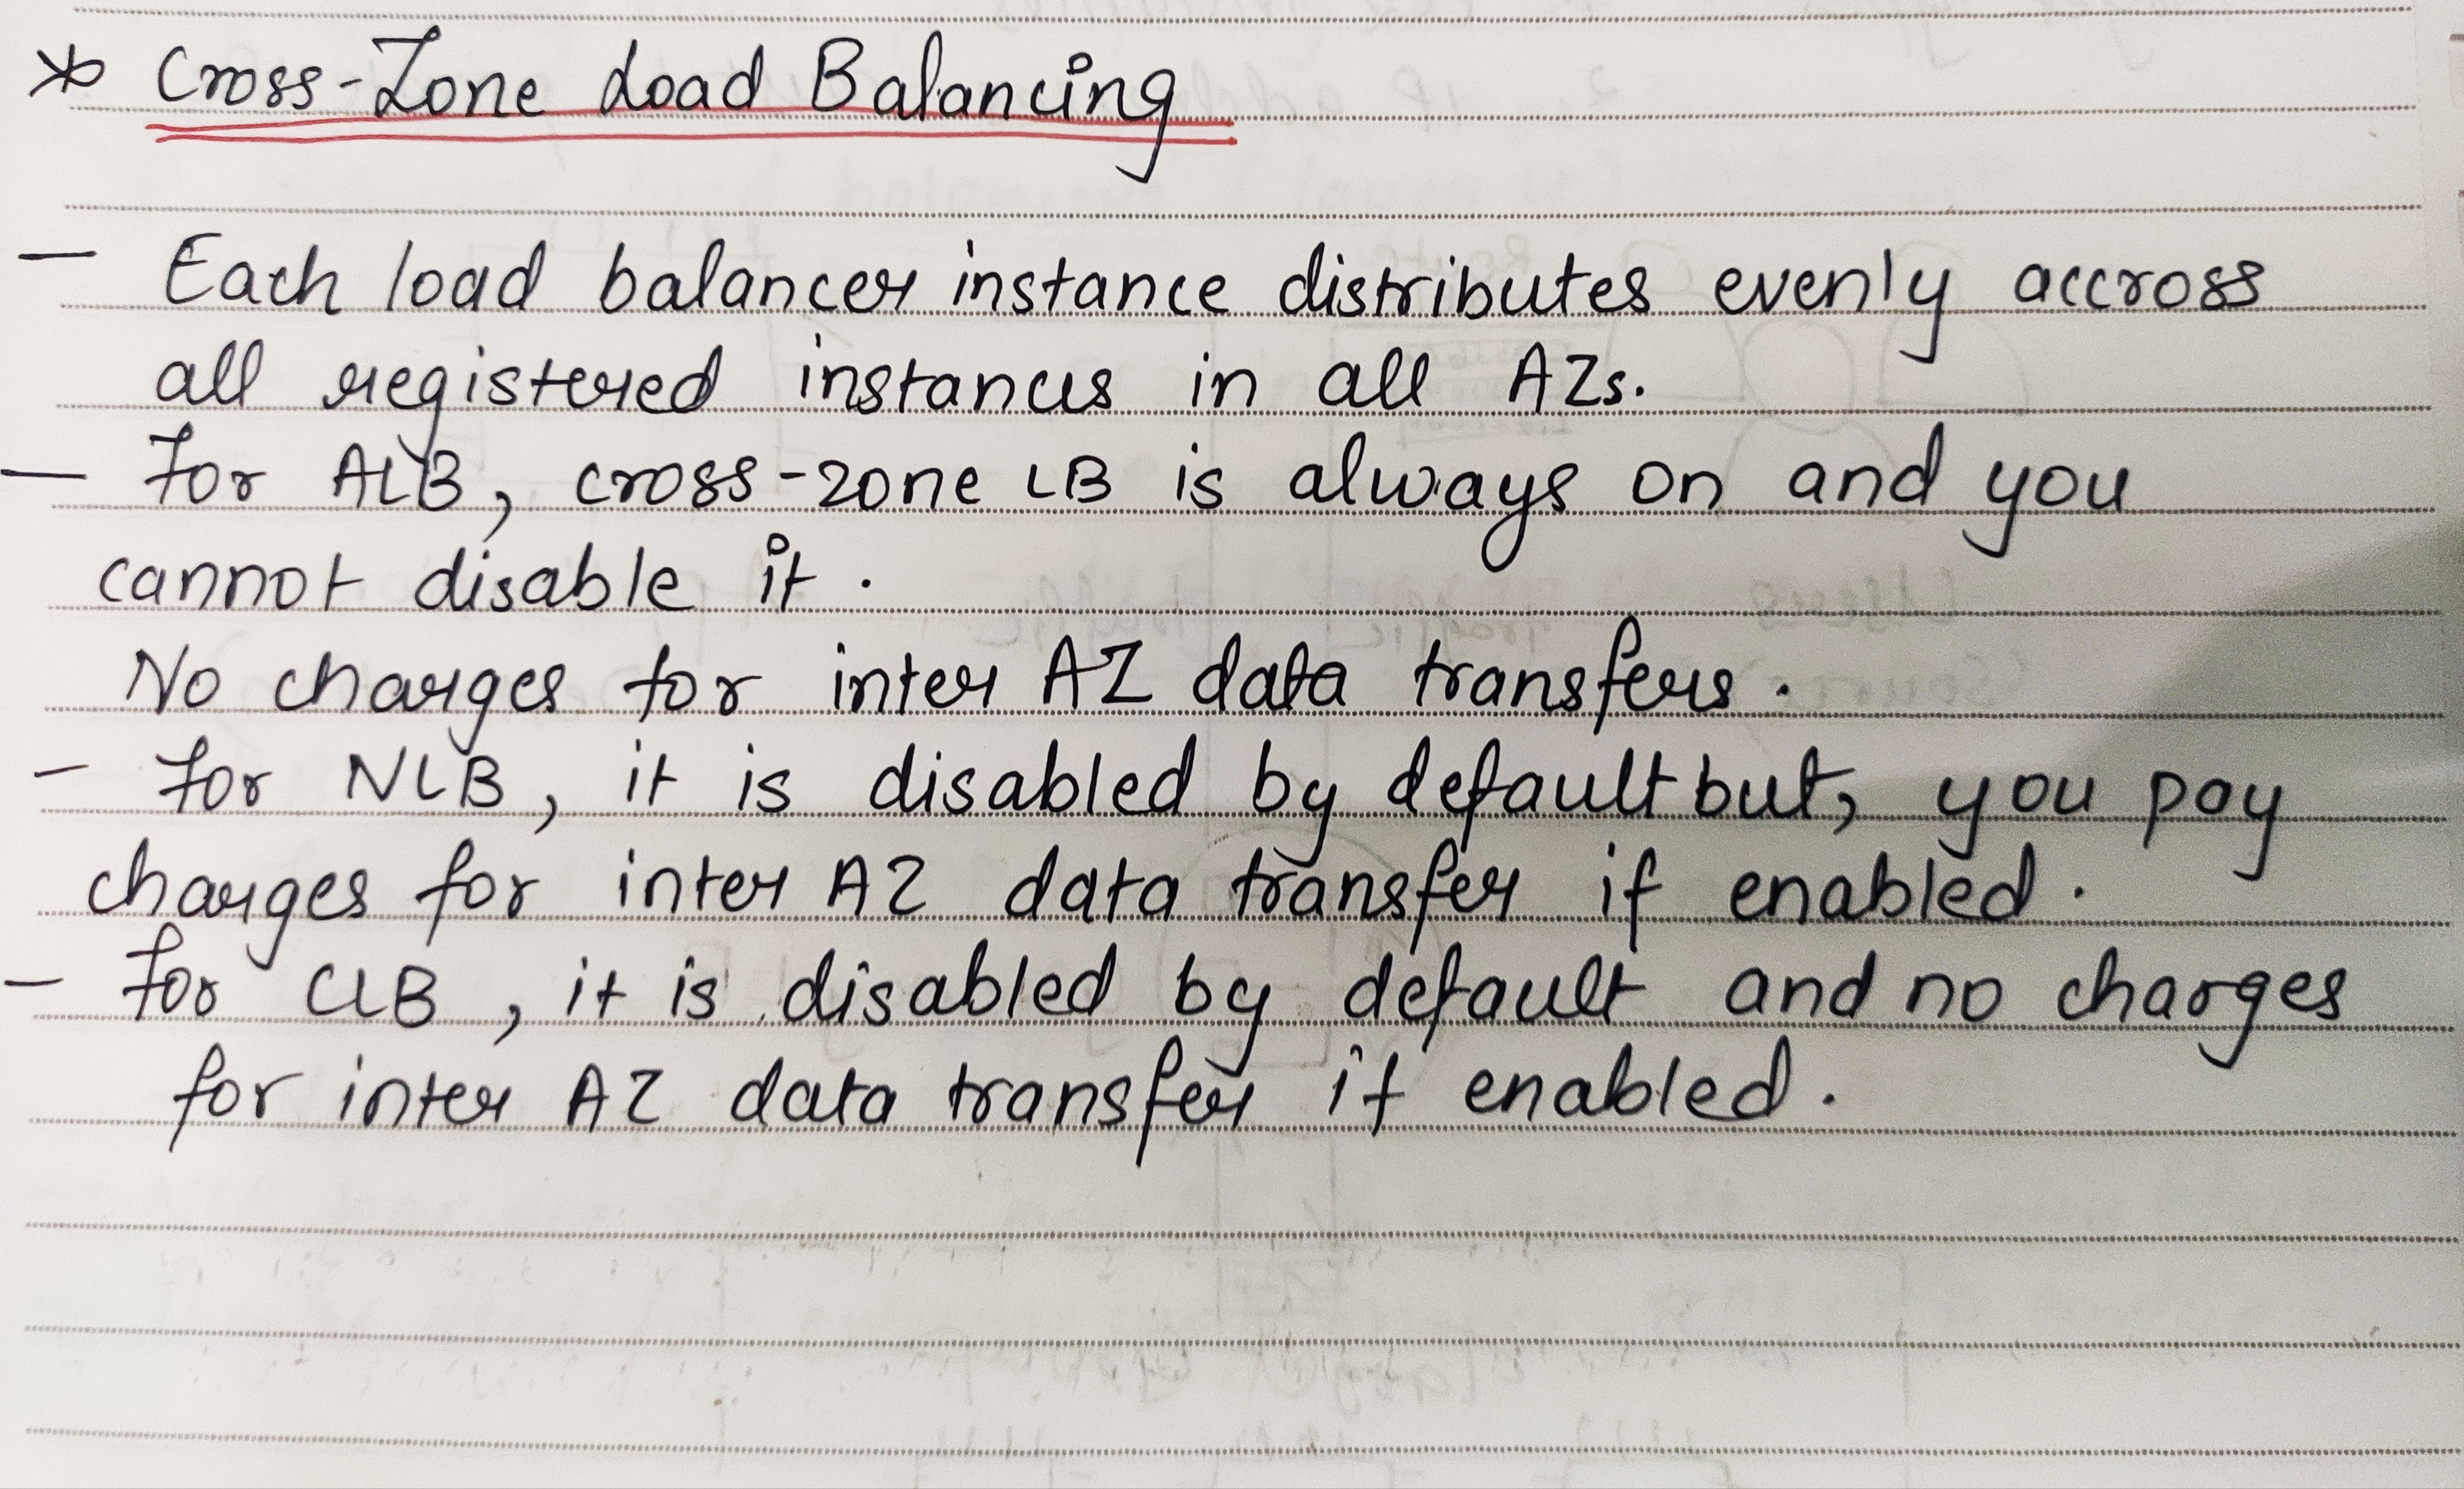 * Cross-Zone Load Balancing
- Each load balancer instance distributes evenly accross
all registered instances in all AZs.
- For ALB, cross-zone LB is always on and you
cannot disable it.
No charges for inter AZ data transfers.
- For NLB, it is disabled by default but, you pay
charges for inter AZ data transfer if enabled.
- For CLB, it is disabled by default and no charges
for inter AZ data transfer if enabled.